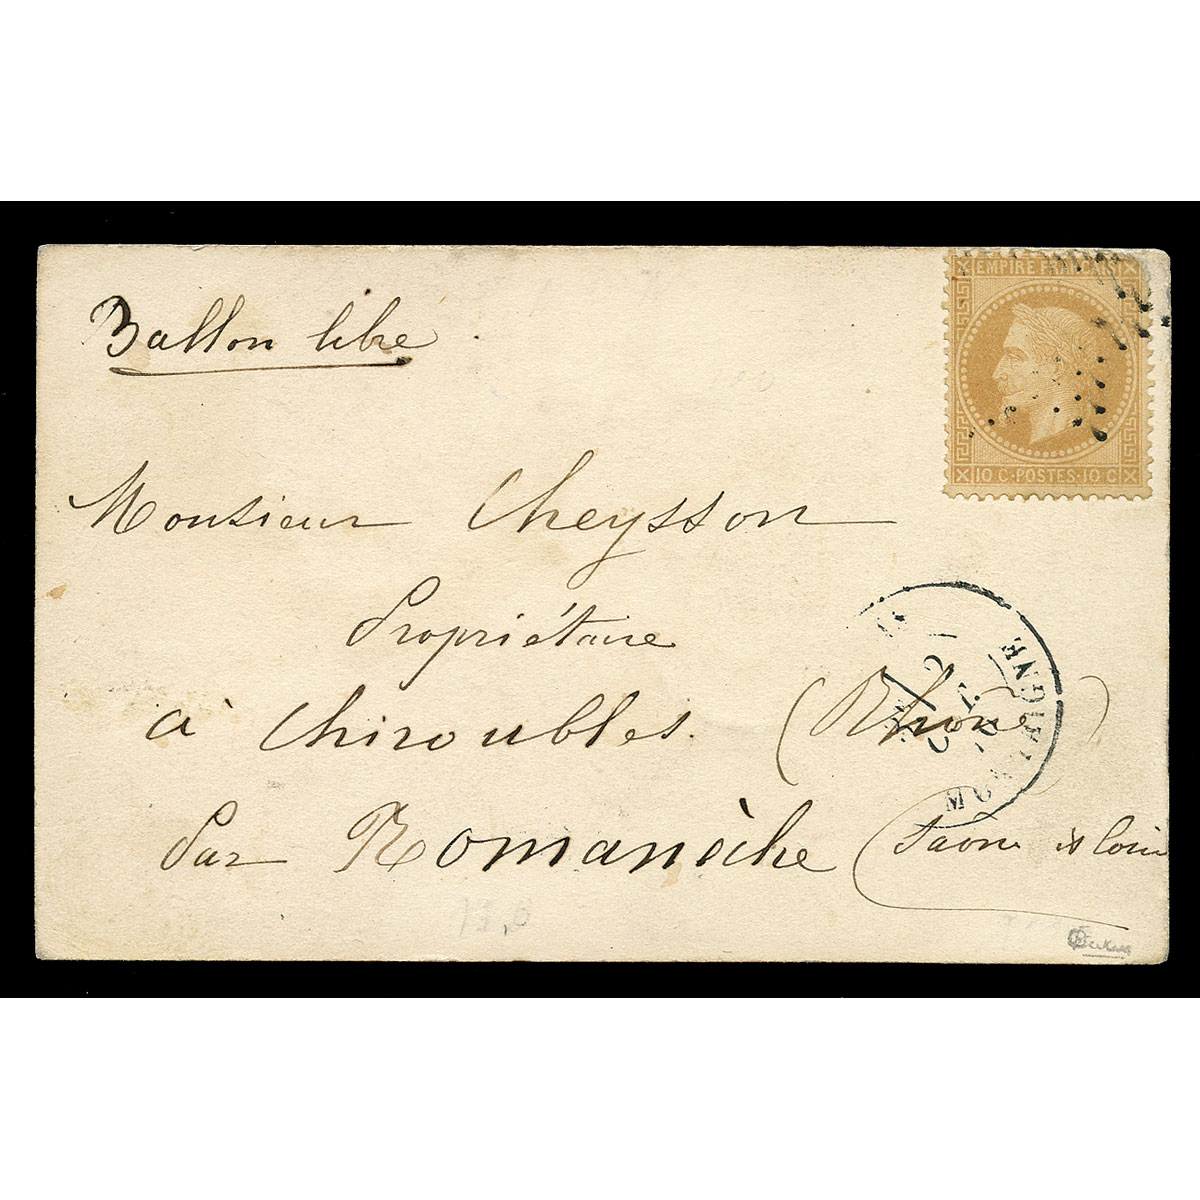 Ballon libre
EMPIRE FRANÇAIS
10 C · POSTES · 10 C
Monsieur Cheysson
Propriétaire
à Chiroubles. (Rhône)
par Romanèche (Saone et Loire
OCT.
73,0